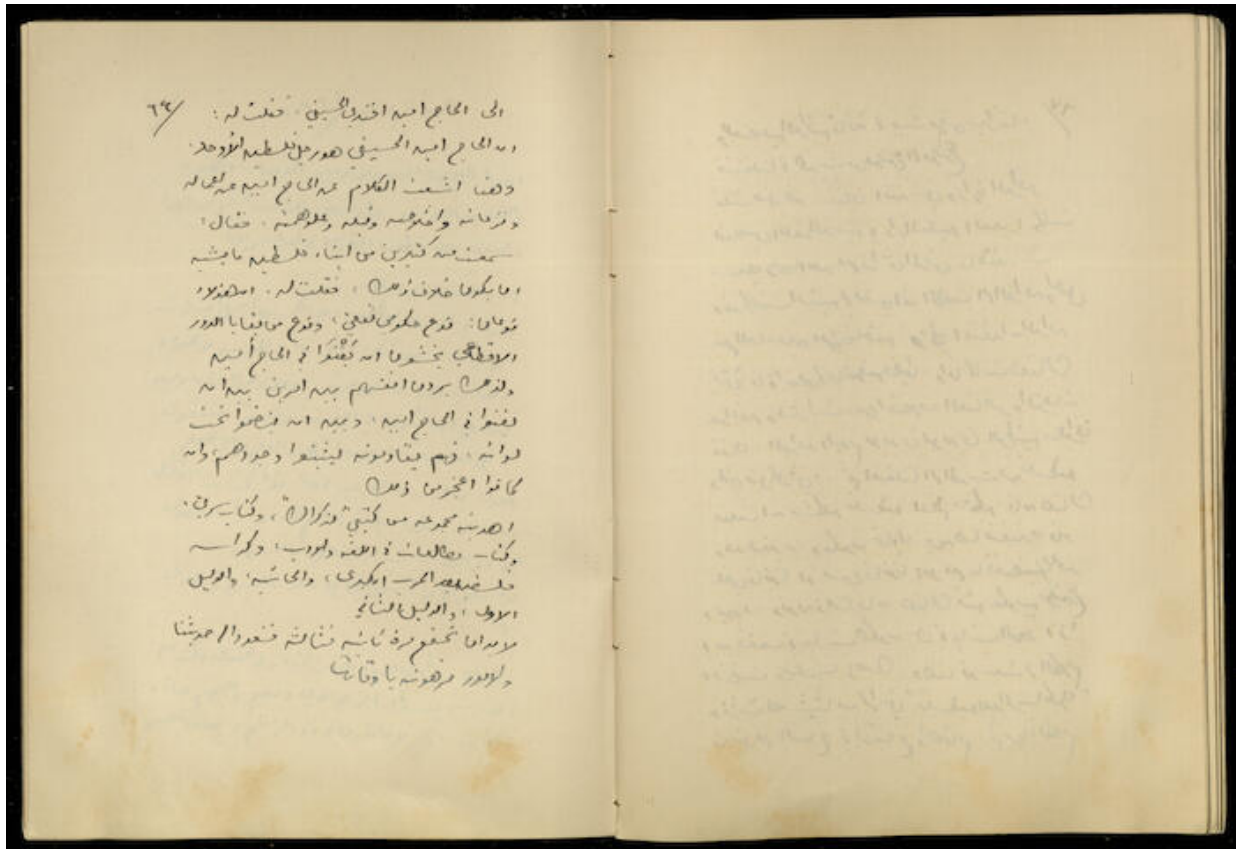 ٦٤/
الى الحاج امين افندي الحسيني. فقلت له:
ان الحاج امين الحسيني هو رجل فلسطين الأوحد.
وهنا اشبعت الكلام عن الحاج امين عن اعماله
واخلاصه ونبله وعلو همته. فقال:
سمعت من كثيرين من ابناء فلسطين ما يشبه
ان يكون خلاف ذلك، فقلت له. ان هؤلاء
نوعان: نوع حكومي نفعي، ونوع من بقايا الدور
الاقطاعي يخشون ان يفنوا في الحاج أمين
ولذلك يرون انفسهم بين امرين بين ان
يفنوا في الحاج امين، وبين ان ينضموا تحت
لوائه، فهم يقاومونه ليثبتوا وجودهم، وان
كانوا اعجز من ذلك
اهديته مجموعة من كتبي "كذا انا"، وكتاب سري.
وكتاب مطالعات في اللغة والادب، وكراسة
فلسطين الحرب الكبرى، والحاشية، والدليل
الاول، والدليل الثاني
لا بد ان نجتمع مرة ثانية فثالثة فنعود الى حديثنا
والامور مرهونة باوقاتها